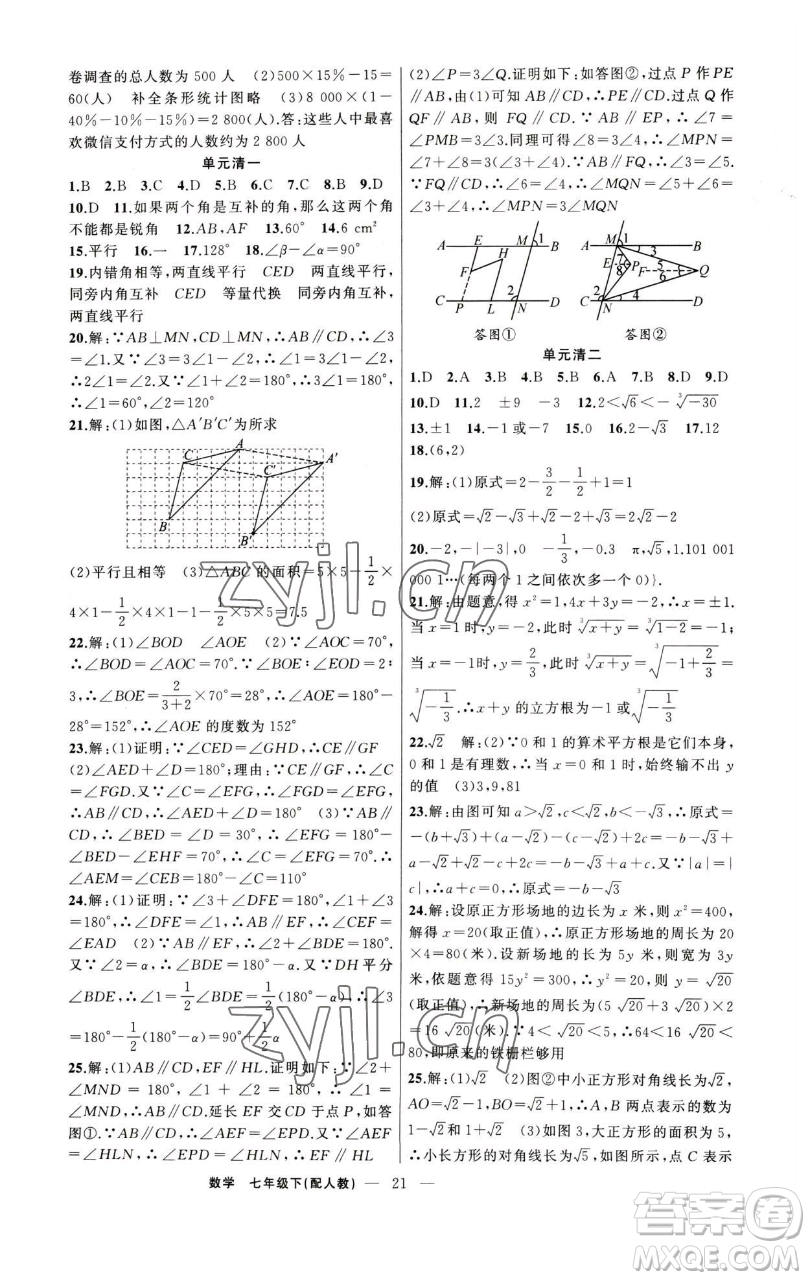 卷调查的总人数为 500 人　(2)500×15%-15=
60(人)　补全条形统计图略　(3)8 000×(1-
40%-10%-15%)=2 800(人).答:这些人中最喜
欢微信支付方式的人数约为 2 800 人
单元清一
1.B　2.B　3.C　4.D　5.D　6.D　7.C　8.B　9.D
10.D　11.如果两个角是互补的角,那么这两个角
不可能都是锐角　12.AB,AF　13.60°　14.6 cm²
15.平行　16.一　17.128°　18.∠β-∠α=90°
19.内错角相等,两直线平行　CED　两直线平行,
同旁内角互补　CED　等量代换　同旁内角互补,
两直线平行
20.解:∵AB⊥MN,CD⊥MN,∴AB∥CD,∴∠3
=∠1.又∵∠2=∠3,∴∠2=2∠1,∴∠3=∠1,∴
21.解:(1)如图,△A′B′C′为所求
A
C
A′
C′
B
B′
(2)平行且相等　(3)△ABC 的面积=5×5-1/2×
4×1-1/2×4×1-1-1/2×5×5=7.5
22.解:(1)∠BOD　∠AOE　(2)∵∠AOC=70°,
∴∠BOD=∠AOC=70°.∵∠BOE:∠EOD=2:
3,∴∠BOE=2/(3+2)×70°=28°,∴∠AOE=180°-
28°=152°,∴∠AOE 的度数为 152°
23.解:(1)证明:∵∠CED=∠GHD,∴CE∥GF
(2)∠AED+∠D=180°.理由:∵CE∥GF,∴∠C
=∠FGD.又∵∠C=∠EFG,∴∠FGD=∠EFG,
∴AB∥CD,∴∠AED+∠D=180°　(3)∵AB∥
CD,∴∠BED=∠D=30°,∴∠EFG=180°-
∠BED-∠EHF=70°,∴∠CEB=∠EFG=70°,∴
∠AEM=∠CEB=180°-70°=110°
24.解:(1)证明:∵∠1+∠2=180°,∠DFE+∠2
=180°,∴∠DFE=∠1,∴AB∥EF,∴∠CEF=
∠EAD　(2)∵AB∥EF,∴∠2+∠BDE=180°.
又∵∠2=α,∴∠BDE=180°-α.又∵DH 平分
∠BDE,∴∠1=1/2∠BDE=1/2(180°-α),∴∠3
=180°-1/2(180°-α)=90°+1/2α
25.解:(1)AB∥CD,EF∥HL.证明如下:∵∠2+
∠MND=180°,∠1=∠2,∴∠1+∠MND=
180°,∴AB∥CD.延长 EF 交 CD 于点 P,如答
图①.∵AB∥CD,∴∠AEF=∠EPD.又∵∠AEF
=∠HLN,∴∠EPD=∠HLN,∴EF∥HL
(2)∠P=3∠Q.证明如下:如答图②,过点 P 作 PE
∥AB,由(1)可知 AB∥CD,∴PE∥CD.过点 Q 作
QF∥AB,则 FQ∥CD.又∵AB∥PE,∴∠7=
∠PMB=3∠3.同理可得∠8=3∠4,∴∠MPN=
∠7+∠8=3∠3+3∠4.∵AB∥FQ,∴∠3=∠5.
∵FQ∥CD,∴∠4=∠6,∴∠MQN=∠5+∠6=
∠3+∠4,∴∠MPN=3∠MQN
A E M 1 B
H
F
2
C P L N D
答图①
A M 1 3 B
E 7 P F 5 Q
8 6
2 4
C N D
答图②
单元清二
1.D　2.A　3.B　4.B　5.B　6.A　7.D　8.D　9.D
10.D　11.2　±9　-3　12.2<√6<-∛-30
13.±1　14.-1 或-7　15.0　16.2-√3　17.12
18.(6,2)
19.解:(1)原式=2-3/2-1/2+1=1
(2)原式=√2-√3+√2-0+√3=2√2
20.-2,-|-3|,0　0,-1/3,-0.3　π,√5,1.101 001
000 1…(每两个 1 之间依次多一个 0)}.
21.解:由题意,得 x²=1,4x+3y=2,∴x=±1.
22.√2　解:(2)∵0 和 1 的算术平方根是它们本身,
0 和 1 是有理数,∴当 x=0 或 1 时,始终输不出 y
的值　(3)3,9,81
23.解:由图可知 a>√2,c<√2,b<-√3,∴原式=
-(b+√3)+(a-√2)-(c-√2)+2c=-b-√3+
a-√2-c+√2+2c=-b-√3+a+c.又∵|a|=|
c|,∴a+c=0,∴原式=-b-√3
24.解:设原正方形场地的边长为 x 米,则 x²=400,
解得 x=20(取正值),∴原正方形场地的周长为 20
×4=80(米).设新场地的长为 5y 米,则宽为 3y
米,依题意得 15y²=300,∴y²=20,∴y=√20
(取正值),∴新场地的周长为(5√20+3√20)×2
=16√20(米).∵4<√20<5,∴64<16√20<
80,即原来的铁栅栏够用
25.解:(1)√2　(2)图②中小正方形对角线长为√2,
AO=√2-1,BO=√2+1,∴A,B 两点表示的数为
1-√2和 1+√2　(3)如图 3,大正方形的面积为 5,
∴小长方形的对角线长为√5,如图所示,点 C 表示
数学　七年级下(配人教)　— 21 —
zyjl.cn
zyjl.cn
答案圈
MXQE.COM